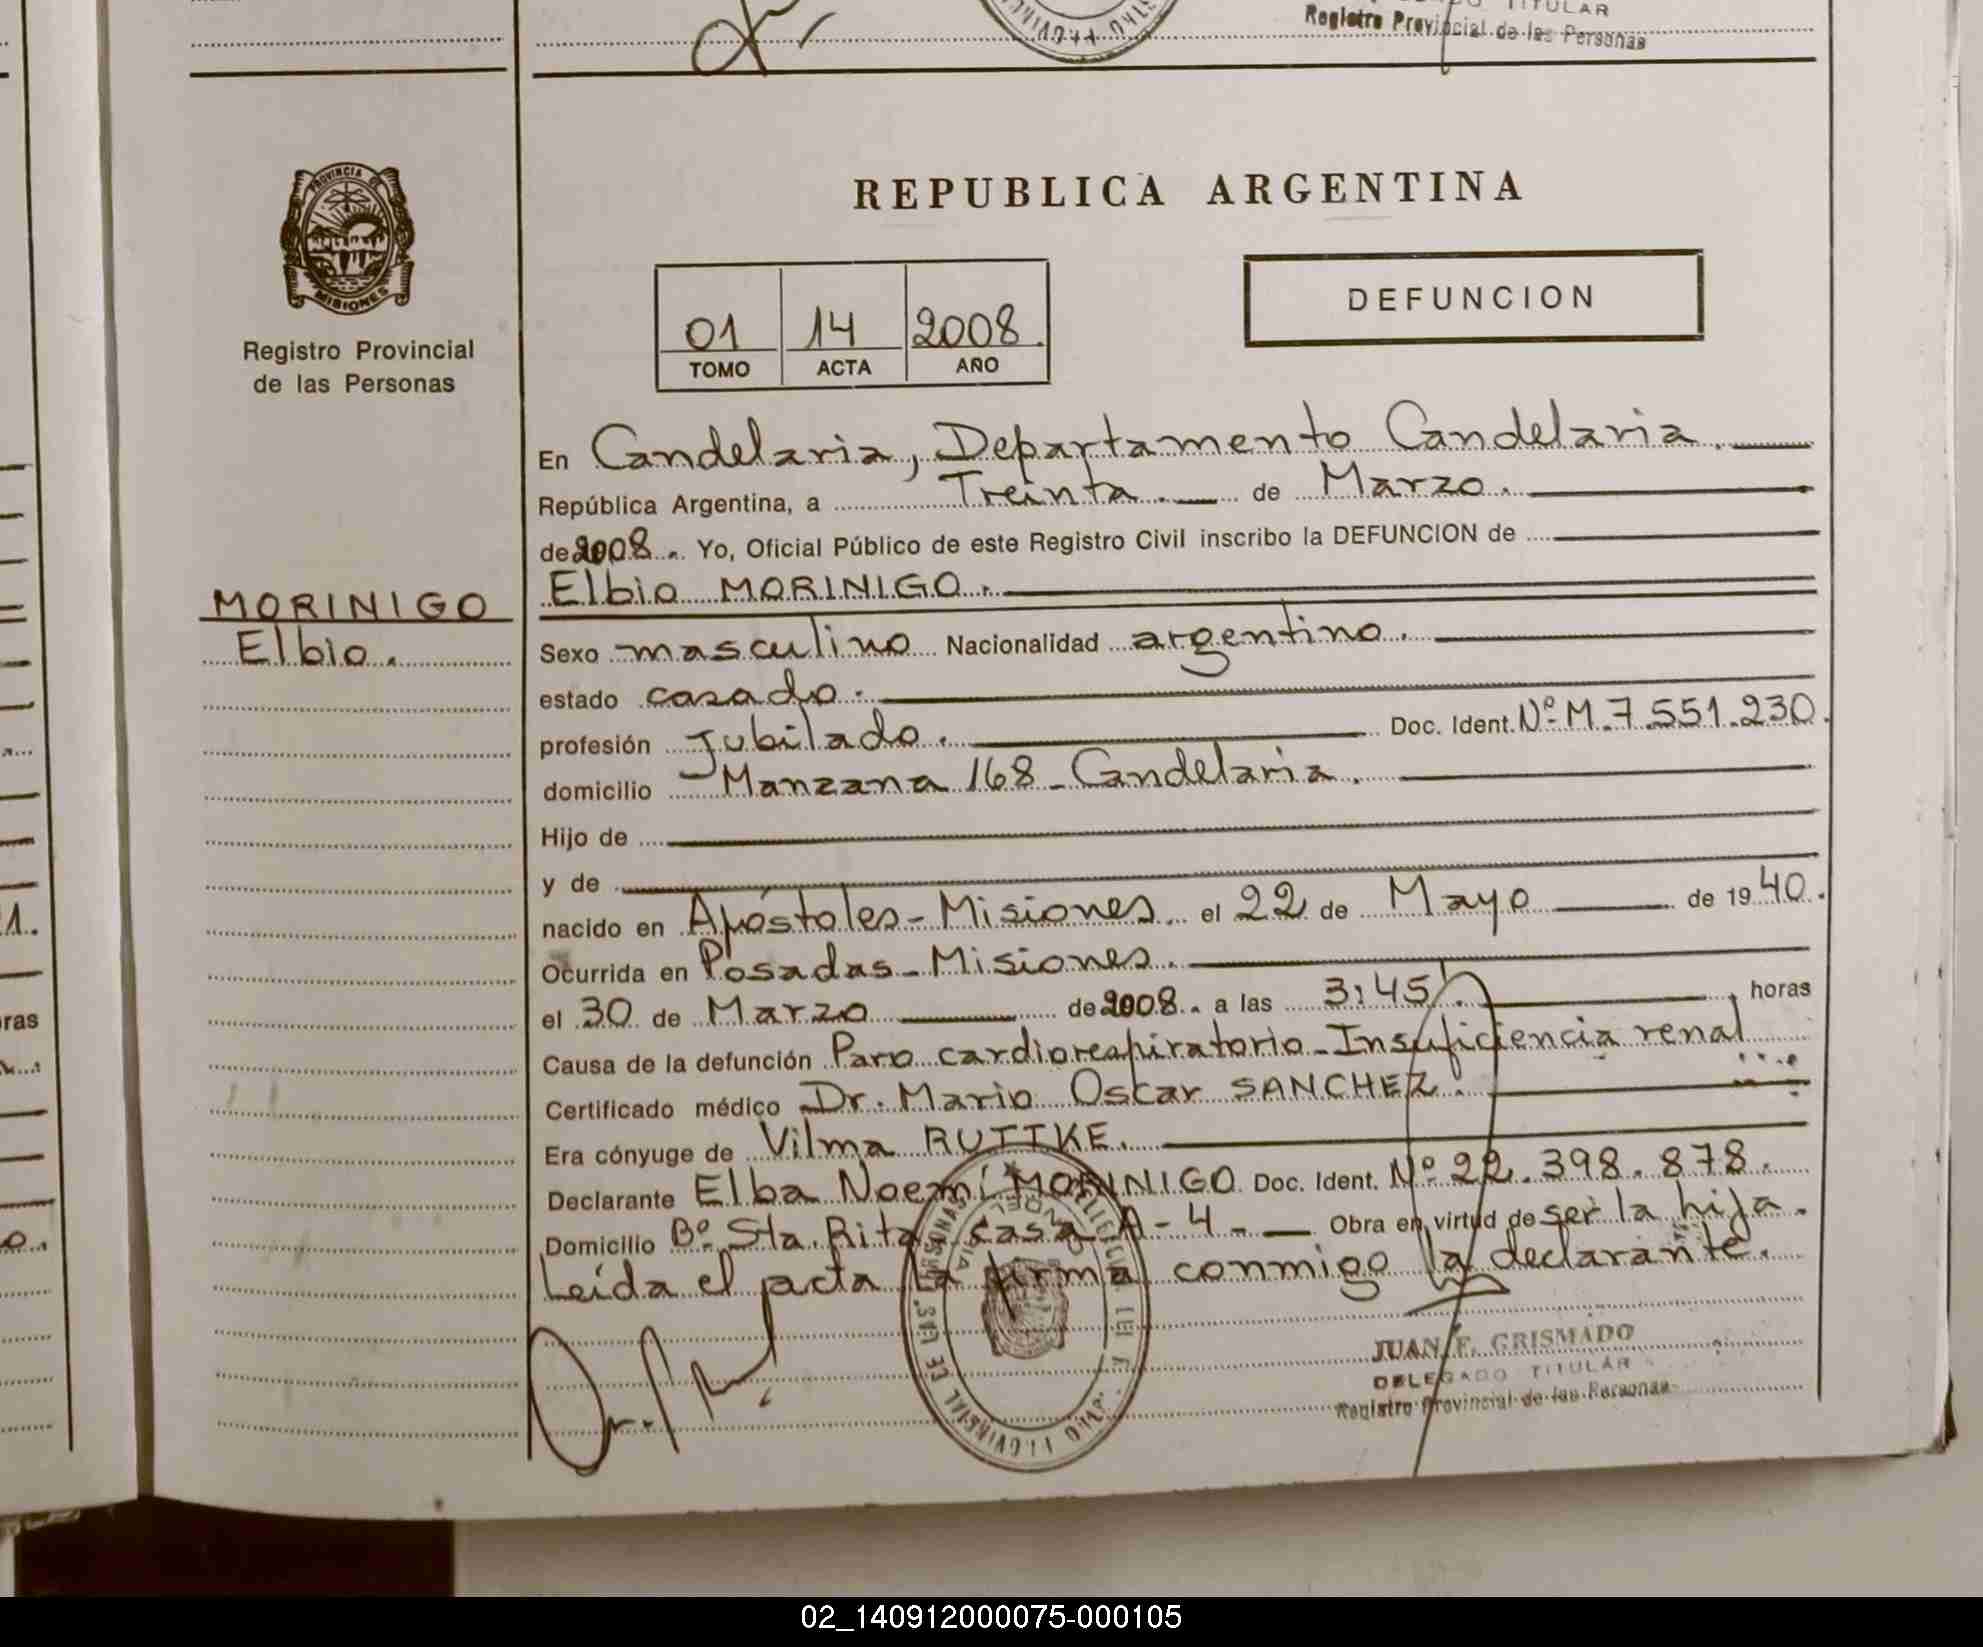 TITULAR
Registro Provincial de las Personas
PROVINCIA DE
MISIONES
Registro Provincial
de las Personas
REPUBLICA ARGENTINA
01 14 2008.
TOMO ACTA AÑO
DEFUNCION
En Candelaria, Departamento Candelaria.
República Argentina, a Treinta. de Marzo.
de 2008. Yo, Oficial Público de este Registro Civil inscribo la DEFUNCION de
MORINIGO
Elbio.
Elbio MORINIGO.
Sexo masculino Nacionalidad argentino.
estado casado.
profesión Jubilado. Doc. Ident. Nº M. 7.551.230.
domicilio Manzana 168 - Candelaria.
Hijo de
y de
nacido en Apóstoles - Misiones el 22 de Mayo de 1940.
Ocurrida en Posadas - Misiones.
el 30 de Marzo de 2008. a las 3:45 . horas
Causa de la defunción Paro cardiorespiratorio - Insuficiencia renal
Certificado médico Dr. Mario Oscar SANCHEZ.
Era cónyuge de Vilma RUTTKE.
Declarante Elba Noemí MORINIGO Doc. Ident. Nº 22.398.878.
Domicilio Bº Sta. Rita casa A-4 - Obra en virtud de ser la hija.
Leída el acta la firma conmigo la declarante.
JUAN F. GRISMADO
DELEGADO TITULAR
Registro Provincial de las Personas
1.
ras
o.
02_140912000075-000105